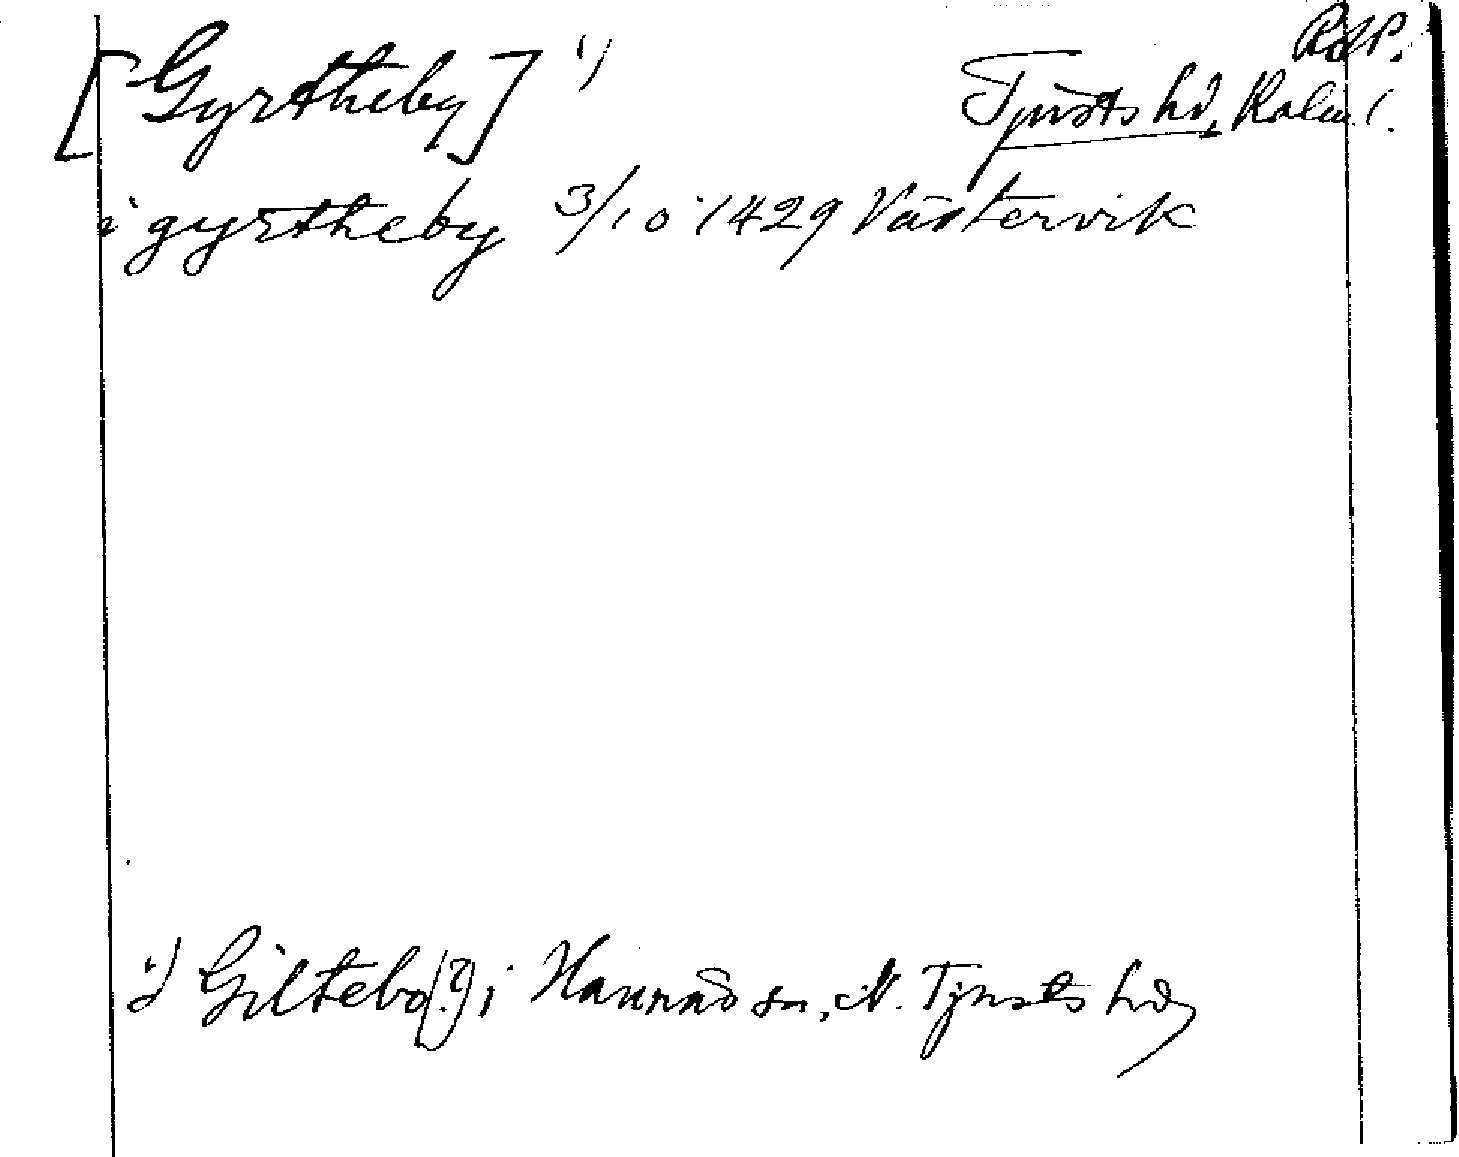 RAP.
[Gyrtheby] 1)
Tjusts hd, Kalm. l.
i gyrtheby 3/10 1429 Västervik
1) Giltebo(?) i Hannäs sn, N. Tjusts hd